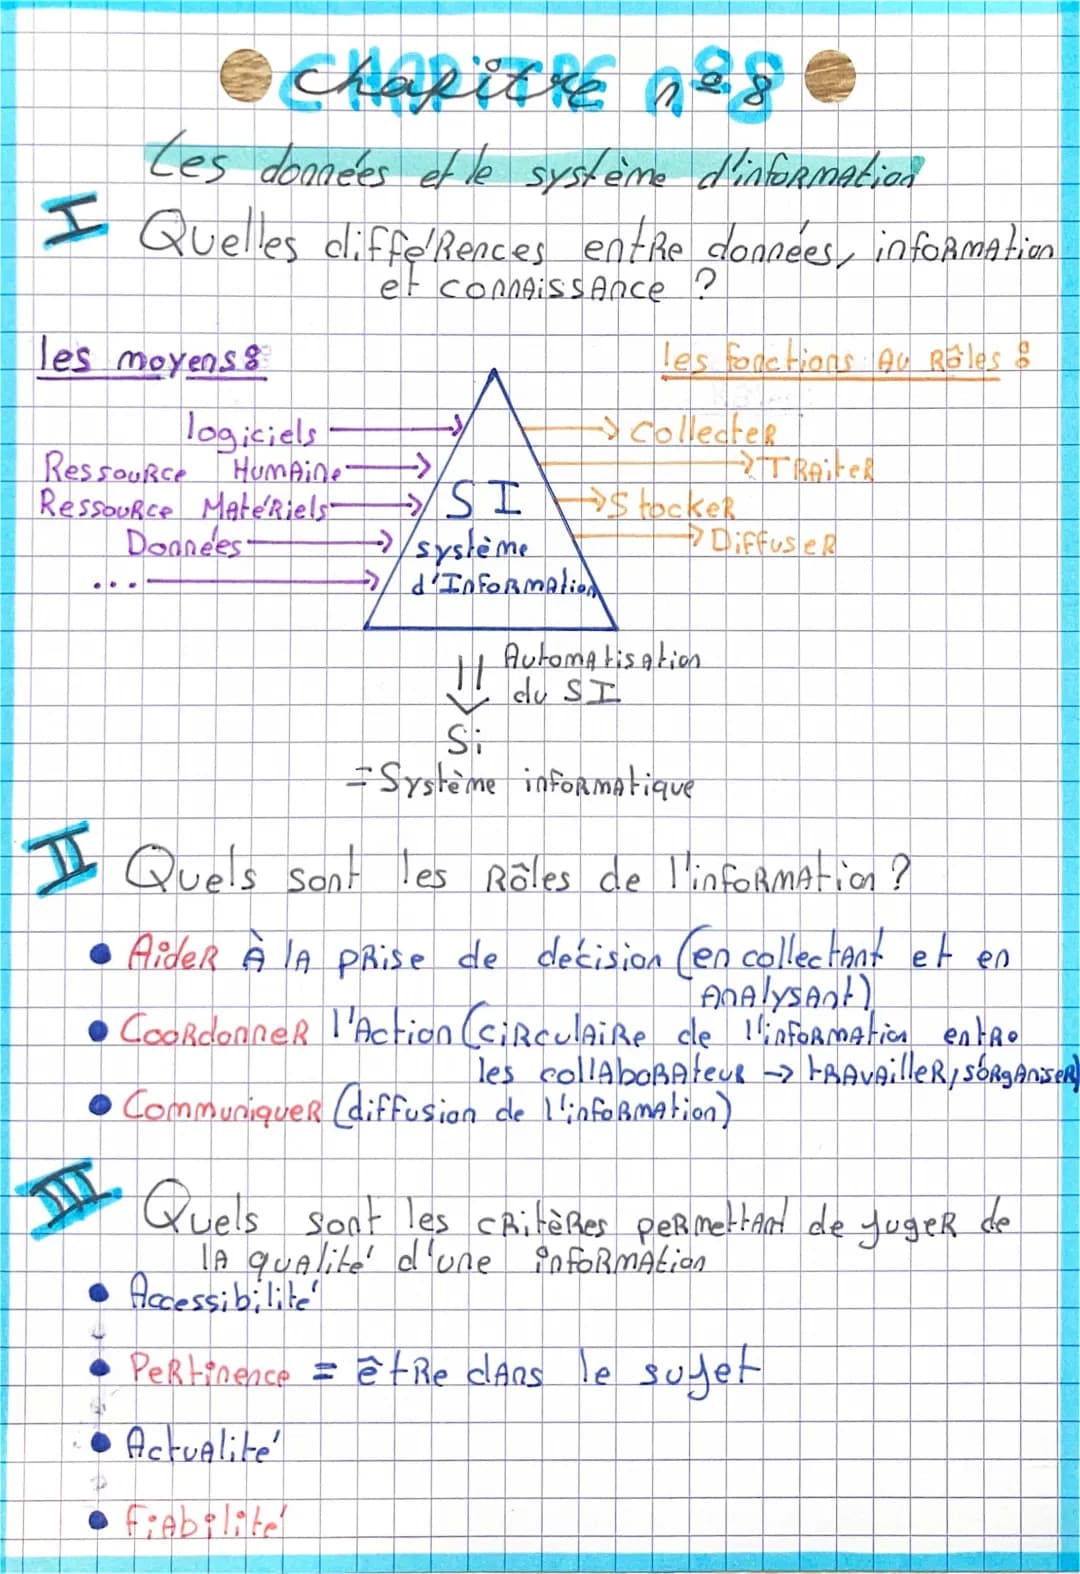 Chapitre n°8
Les données et le système d'information
I Quelles différences entre données, information
et connaissance ?
les moyens :
les fonctions Au Rôles :
logiciels
Ressource Humaine
Ressource Matériels
Données
...
Collecter
Traiter
Stocker
Diffuser
SI
système
d'Information
Automatisation
du SI
Si
= Système informatique
II Quels sont les Rôles de l'information ?
Aider À la prise de decision (en collectant et en
Analysant)
Coordonner l'Action (circulaire de l'information entre
les collaborateur → travailler, s'organiser)
Communiquer (diffusion de l'information)
III Quels sont les critères permettant de juger de
la qualité d'une information
Accessibilité
Pertinence = être dans le sujet
Actualité
Fiabilité